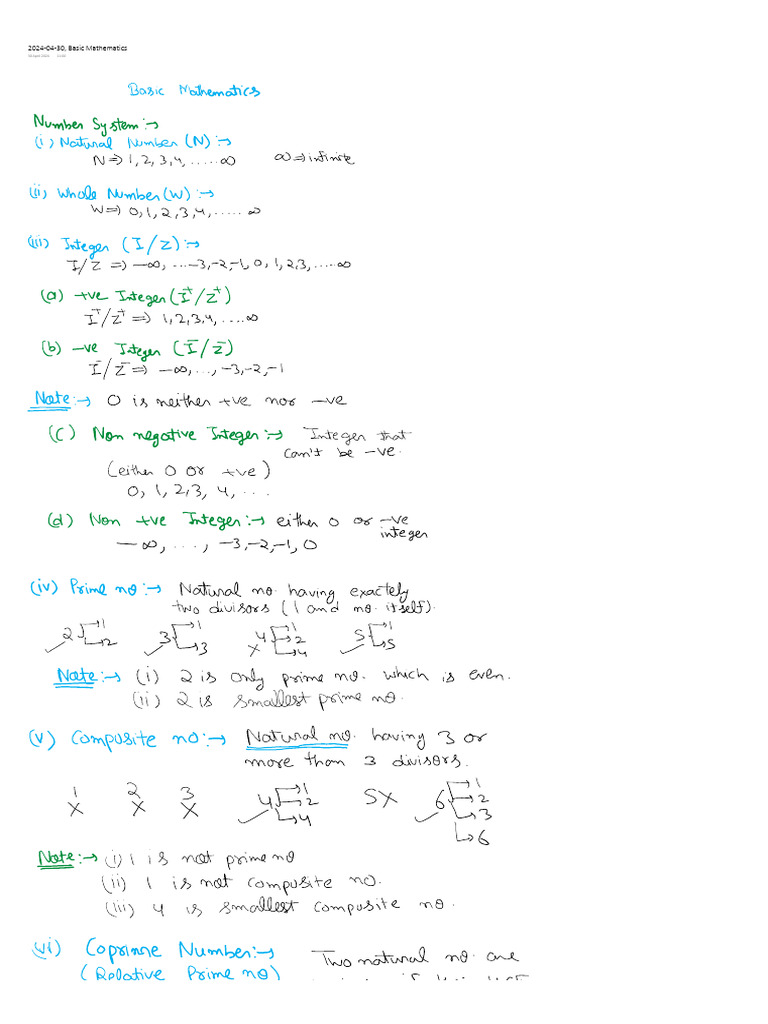 2024-04-30, Basic Mathematics
30 April 2024
Basic Mathematics
Number System:→
(i) Natural Number (N) :→
N ⇒ 1, 2, 3, 4, ..... ∞ ∞ ⇒ infinite
(ii) Whole Number (W) :→
W ⇒ 0, 1, 2, 3, 4, ..... ∞
(iii) Integer (I/Z) :→
I/Z ⇒ -∞, ...-3, -2, -1, 0, 1, 2, 3, ..... ∞
(a) +ve Integer (I⁺/Z⁺)
I⁺/Z⁺ ⇒ 1, 2, 3, 4, .... ∞
(b) -ve Integer (I⁻/Z⁻)
I⁻/Z⁻ ⇒ -∞, ..., -3, -2, -1
Note:→ 0 is neither +ve nor -ve
(C) Non negative Integer :→ Integer that
can't be -ve.
(either 0 or +ve)
0, 1, 2, 3, 4, ...
(d) Non +ve Integer :→ either 0 or -ve
integer
-∞, ..., -3, -2, -1, 0
(iv) Prime no :→ Natural no. having exactely
two divisors (1 and no. itself).
2 → 1 → 2 3 → 1 → 3 4 → 1 → 2 → 4 5 → 1 → 5
✓ ✓ × ✓
Note :→ (i) 2 is only prime no. which is even.
(ii) 2 is smallest prime no.
(v) Composite no :→ Natural no. having 3 or
more than 3 divisors.
1 2 3 4 → 1 → 2 → 4 5 × 6 → 1 → 2 → 3 → 6
× × × ✓ ✓
Note :→ (i) 1 is not prime no
(ii) 1 is not composite no.
(iii) 4 is smallest composite no.
(vi) Coprime Number :→ Two natural no. are
(Relative Prime no)